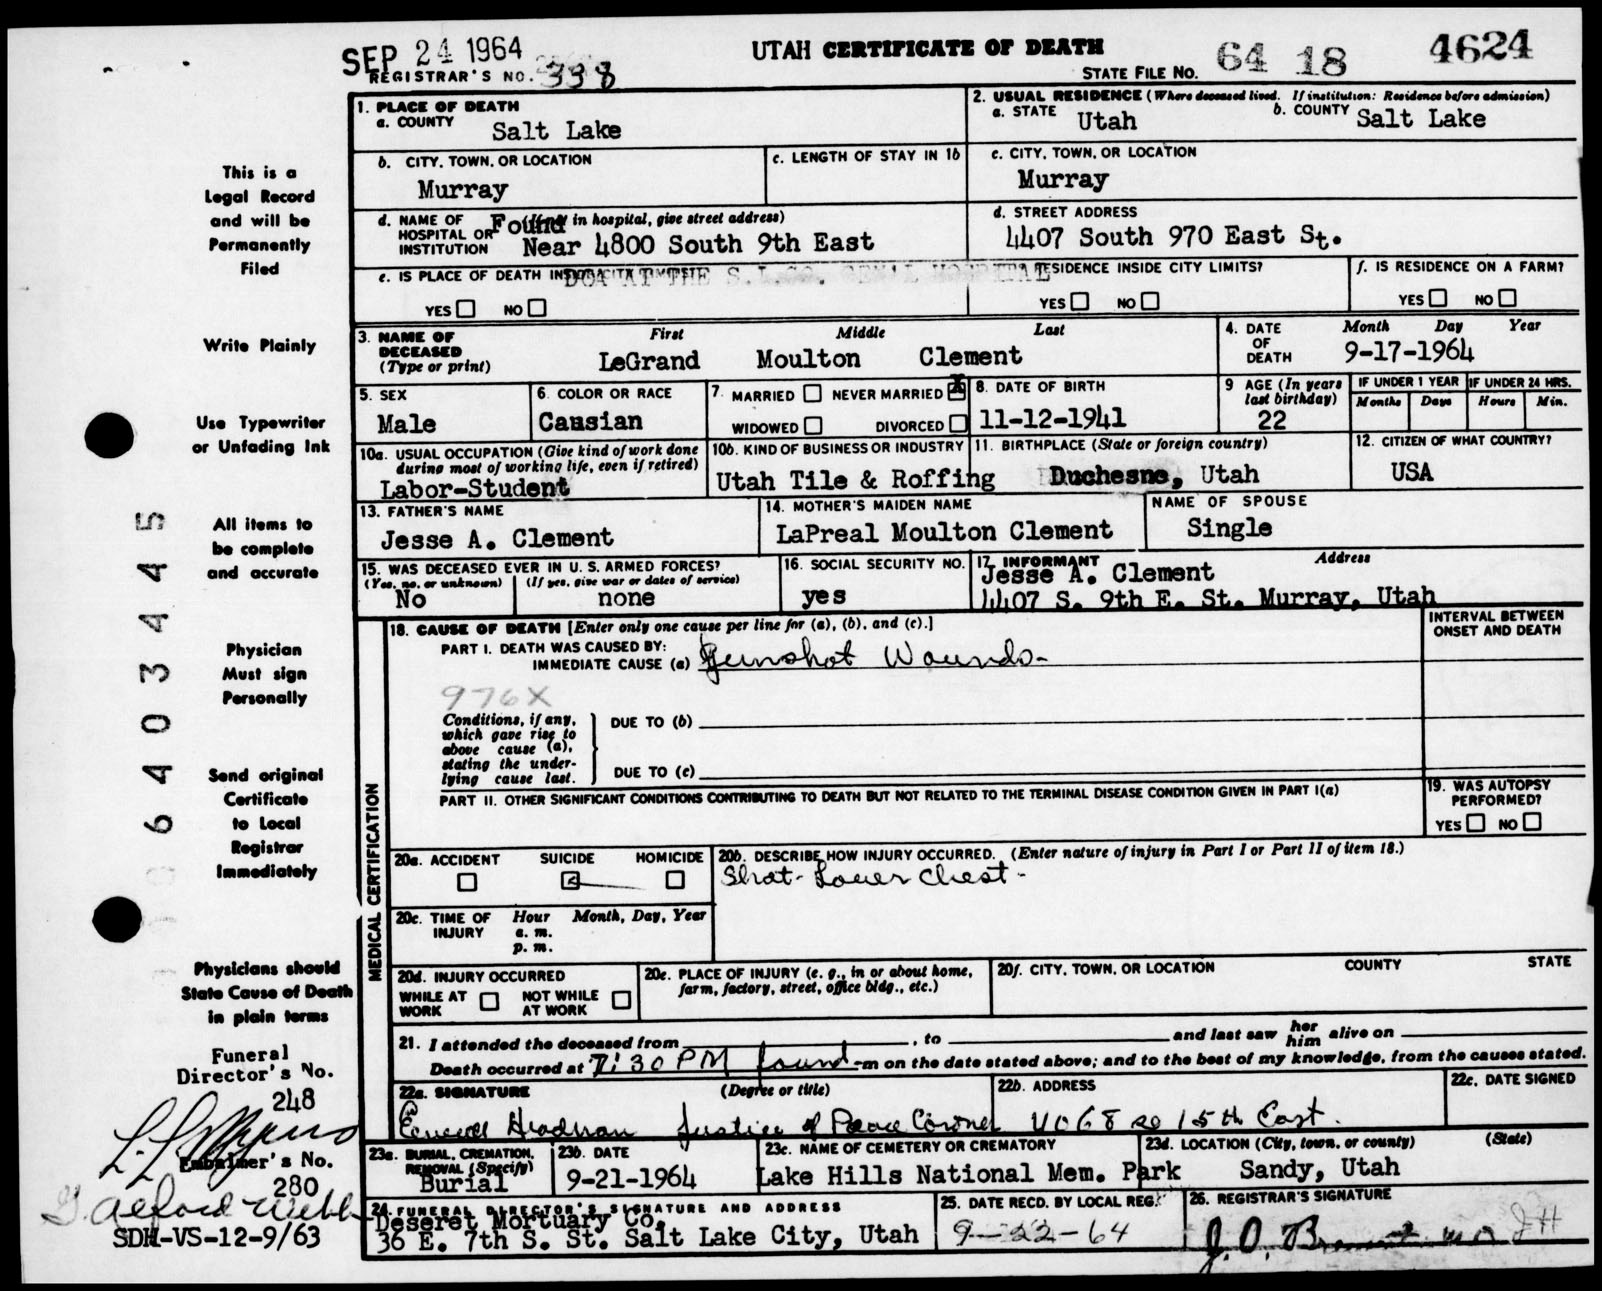 SEP 24 1964
UTAH CERTIFICATE OF DEATH
REGISTRAR'S NO. 338
STATE FILE No. 64 18 4624
1. PLACE OF DEATH
a. COUNTY Salt Lake
2. USUAL RESIDENCE (Where deceased lived. If institution: Residence before admission)
a. STATE Utah b. COUNTY Salt Lake
b. CITY, TOWN, OR LOCATION
Murray
c. LENGTH OF STAY IN 1b
c. CITY, TOWN, OR LOCATION
Murray
d. NAME OF HOSPITAL OR INSTITUTION (If not in hospital, give street address)
Found
Near 4800 South 9th East
d. STREET ADDRESS
4407 South 970 East St.
e. IS PLACE OF DEATH
DOA AT THE S.L.CO. GEN'L HOSPITAL
YES NO
RESIDENCE INSIDE CITY LIMITS?
YES NO
f. IS RESIDENCE ON A FARM?
YES NO
3. NAME OF DECEASED (Type or print)
First Middle Last
LeGrand Moulton Clement
4. DATE OF DEATH
Month Day Year
9-17-1964
5. SEX
Male
6. COLOR OR RACE
Causian
7. MARRIED NEVER MARRIED X
WIDOWED DIVORCED
8. DATE OF BIRTH
11-12-1941
9 AGE (In years last birthday)
22
IF UNDER 1 YEAR
Months Days
IF UNDER 24 HRS.
Hours Min.
10a. USUAL OCCUPATION (Give kind of work done during most of working life, even if retired)
Labor-Student
10b. KIND OF BUSINESS OR INDUSTRY
Utah Tile & Roffing
11. BIRTHPLACE (State or foreign country)
Duchesne, Utah
12. CITIZEN OF WHAT COUNTRY?
USA
13. FATHER'S NAME
Jesse A. Clement
14. MOTHER'S MAIDEN NAME
LaPreal Moulton Clement
NAME OF SPOUSE
Single
15. WAS DECEASED EVER IN U. S. ARMED FORCES?
(Yes, no, or unknown) (If yes, give war or dates of service)
No none
16. SOCIAL SECURITY NO.
yes
17. INFORMANT Address
Jesse A. Clement
4407 S. 9th E. St. Murray, Utah
18. CAUSE OF DEATH [Enter only one cause per line for (a), (b), and (c).]
INTERVAL BETWEEN ONSET AND DEATH
PART I. DEATH WAS CAUSED BY:
IMMEDIATE CAUSE (a) Gunshot Wounds-
976X
Conditions, if any, which gave rise to above cause (a), stating the underlying cause last.
DUE TO (b)
DUE TO (c)
PART II. OTHER SIGNIFICANT CONDITIONS CONTRIBUTING TO DEATH BUT NOT RELATED TO THE TERMINAL DISEASE CONDITION GIVEN IN PART I(a)
19. WAS AUTOPSY PERFORMED?
YES NO
MEDICAL CERTIFICATION
20a. ACCIDENT SUICIDE HOMICIDE
20b. DESCRIBE HOW INJURY OCCURRED. (Enter nature of injury in Part I or Part II of item 18.)
Shot- Lower Chest-
20c. TIME OF INJURY
Hour Month, Day, Year
a. m.
p. m.
20d. INJURY OCCURRED
WHILE AT WORK NOT WHILE AT WORK
20e. PLACE OF INJURY (e. g., in or about home, farm, factory, street, office bldg., etc.)
20f. CITY, TOWN, OR LOCATION COUNTY STATE
21. I attended the deceased from , to and last saw her him alive on
Death occurred at 7:30 PM found -m on the date stated above; and to the best of my knowledge, from the causes stated.
22a. SIGNATURE (Degree or title)
Justice of Peace Coroner
22b. ADDRESS
4068 so 15th East.
22c. DATE SIGNED
23a. BURIAL, CREMATION, REMOVAL (Specify)
Burial
23b. DATE
9-21-1964
23c. NAME OF CEMETERY OR CREMATORY
Lake Hills National Mem. Park
23d. LOCATION (City, town, or county) (State)
Sandy, Utah
24. FUNERAL DIRECTOR'S SIGNATURE AND ADDRESS
Deseret Mortuary Co.
36 E. 7th S. St. Salt Lake City, Utah
25. DATE RECD. BY LOCAL REG.
9-22-64
26. REGISTRAR'S SIGNATURE
This is a
Legal Record
and will be
Permanently
Filed
Write Plainly
Use Typewriter
or Unfading Ink
All items to
be complete
and accurate
Physician
Must sign
Personally
Send original
Certificate
to Local
Registrar
Immediately
Physicians should
State Cause of Death
in plain terms
Funeral
Director's No.
248
Embalmer's No.
280
G. Alford Webb
SDH-VS-12-9/63
6403445